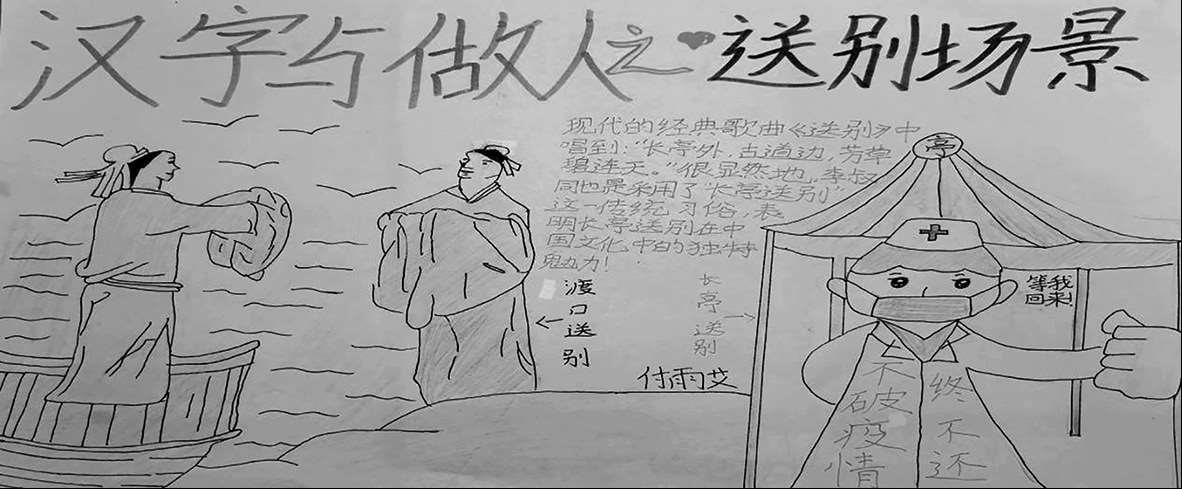 汉字与做人之送别场景
现代的经典歌曲《送别》中
唱到:"长亭外,古道边,芳草
碧连天。"很显然地,李叔
同也是采用了"长亭送别"
这一传统习俗,表
明长亭送别在中
国文化中的独特
魅力!
渡口送别
长亭送别
付雨艾
亭
等我
回来!
不破疫情
终不还